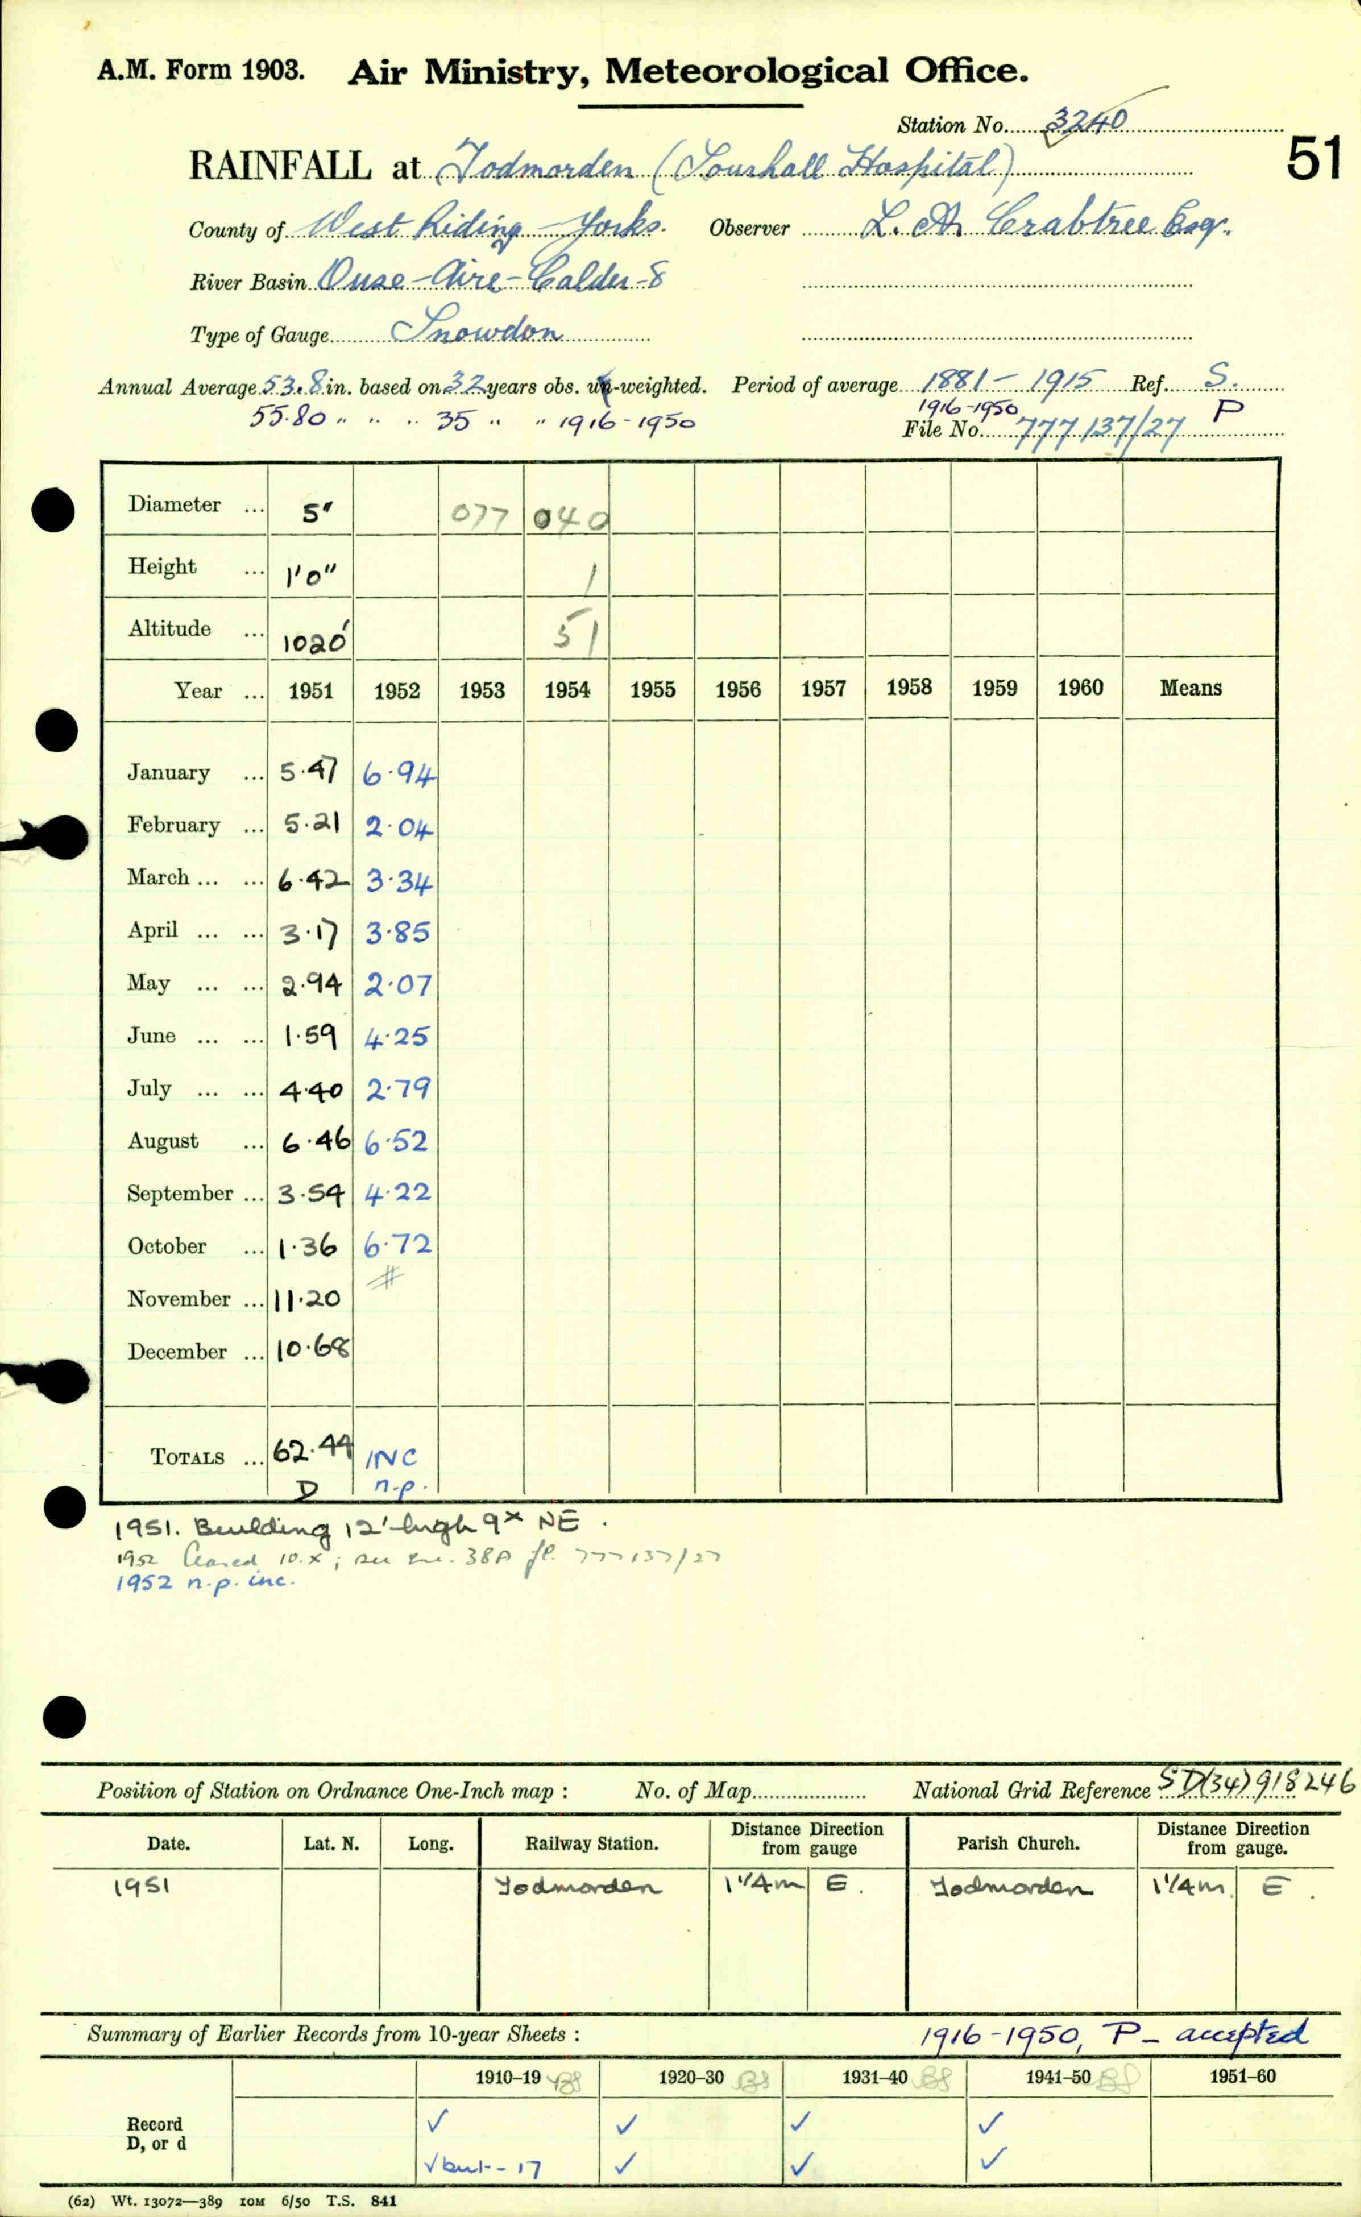 A.M. Form 1903. Air Ministry, Meteorological Office.
Station No. 3240
51
RAINFALL at Todmorden (Sourhall Hospital)
County of West Riding - Yorks. Observer L. A. Crabtree Esq.
River Basin Ouse-Aire-Calder-8
Type of Gauge Snowdon
Annual Average 53.8 in. based on 32 years obs. un-weighted. Period of average 1881-1915 Ref. S.
55.80 " " .. 35 " " 1916-1950 1916-1950 P
File No. 777137/27
Diameter ... 5" 077 040
Height ... 1'0" 1
Altitude ... 1020' 51
Year ... 1951 1952 1953 1954 1955 1956 1957 1958 1959 1960 Means
January ... 5.47 6.94
February ... 5.21 2.04
March ... ... 6.42 3.34
April ... ... 3.17 3.85
May ... ... 2.94 2.07
June ... ... 1.59 4.25
July ... ... 4.40 2.79
August ... 6.46 6.52
September ... 3.54 4.22
October ... 1.36 6.72
#
November ... 11.20
December ... 10.68
TOTALS ... 62.44 INC
D n.p.
1951. Building 12' high 9x NE.
1952 Ceased 10.x; see 38A fl. 777137/27
1952 n.p. inc.
Position of Station on Ordnance One-Inch map : No. of Map National Grid Reference SD(34)918246
Date. Lat. N. Long. Railway Station. Distance Direction from gauge Parish Church. Distance Direction from gauge.
1951 Todmorden 1 1/4 m E. Todmorden 1 1/4 m. E.
Summary of Earlier Records from 10-year Sheets : 1916-1950, P- accepted
1910-19 1920-30 1931-40 1941-50 1951-60
Record ✓ ✓ ✓ ✓
D, or d ✓ but - 17 ✓ ✓ ✓
(62) Wt. 13072—389 10M 6/50 T.S. 841